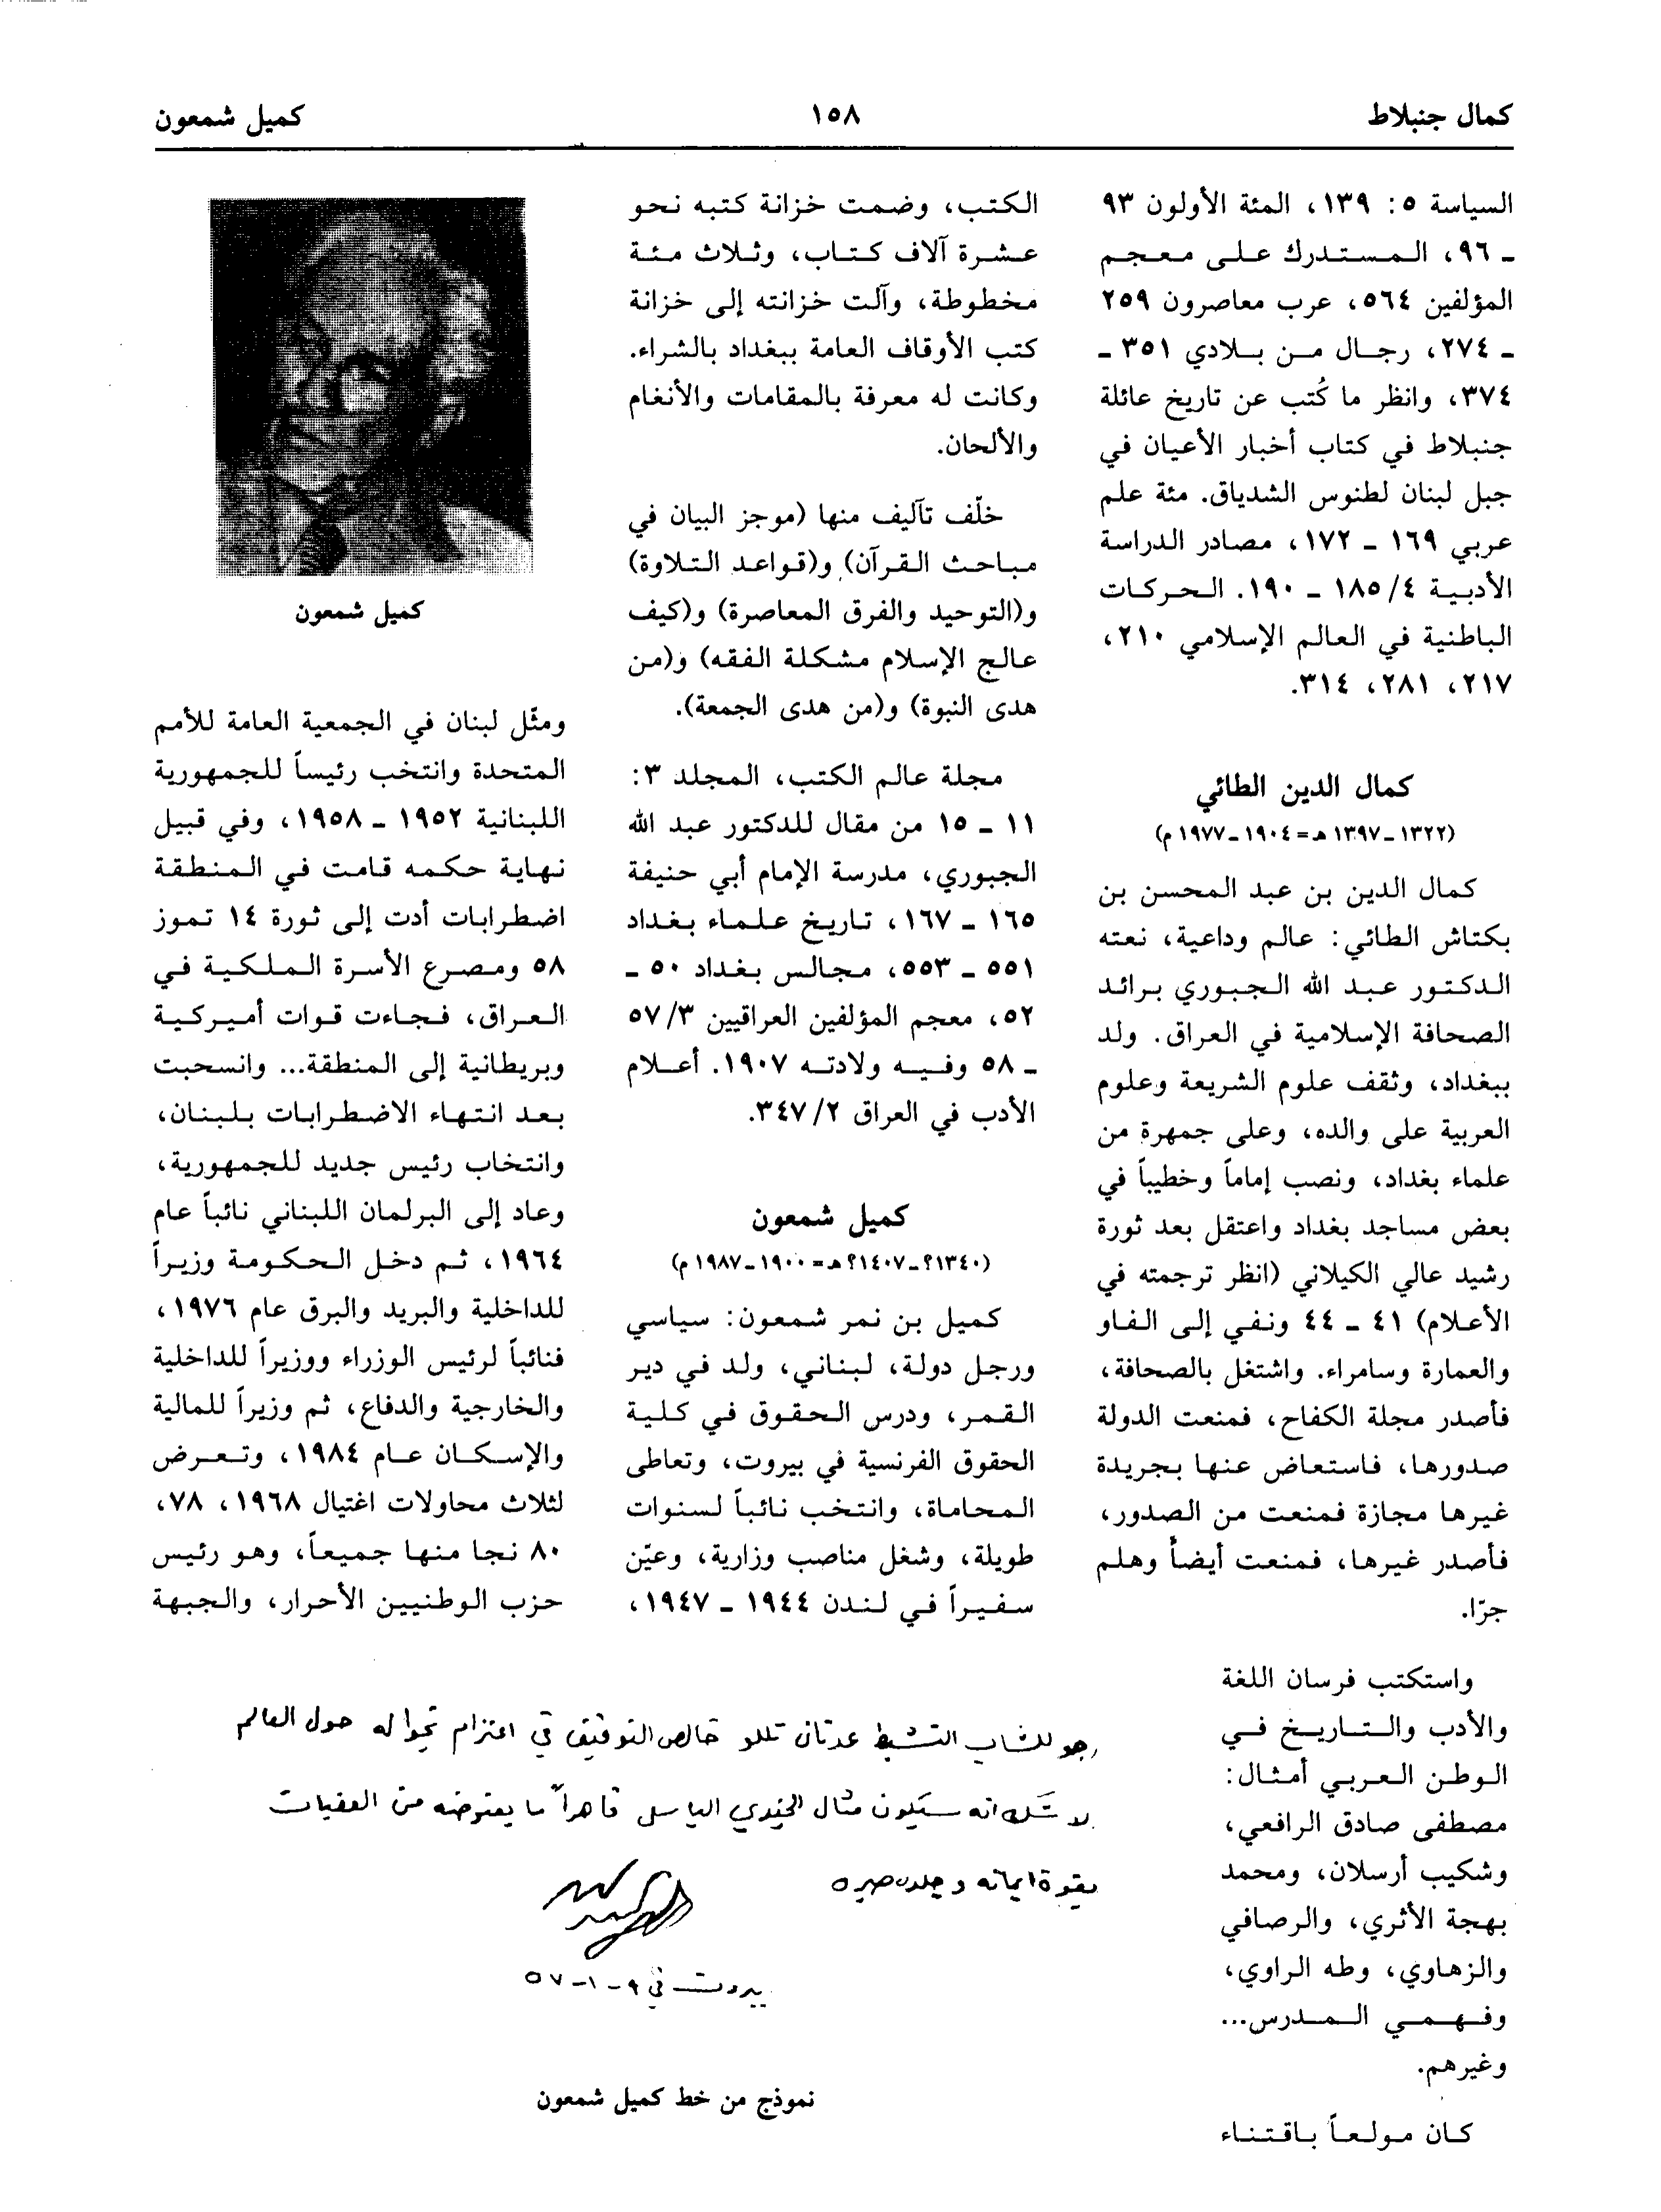 كمال جنبلاط
١٥٨
كميل شمعون
السياسة ٥: ١٣٩، المئة الأولون ٩٣
ـ ٩٦، المستدرك على معجم
المؤلفين ٥٦٤، عرب معاصرون ٢٥٩
ـ ٢٧٤، رجال من بلادي ٣٥١ ـ
٣٧٤، وانظر ما كُتب عن تاريخ عائلة
جنبلاط في كتاب أخبار الأعيان في
جبل لبنان لطنوس الشدياق. مئة علم
عربي ١٦٩ ـ ١٧٢، مصادر الدراسة
الأدبية ٤/ ١٨٥ ـ ١٩٠. الحركات
الباطنية في العالم الإسلامي ٢١٠،
٢١٧، ٢٨١، ٣١٤.
كمال الدين الطائي
(١٣٢٢ـ١٣٩٧ هـ = ١٩٠٤ـ١٩٧٧ م)
كمال الدين بن عبد المحسن بن
بكتاش الطائي: عالم وداعية، نعته
الدكتور عبد الله الجبوري برائد
الصحافة الإسلامية في العراق. ولد
ببغداد، وثقف علوم الشريعة وعلوم
العربية على والده، وعلى جمهرة من
علماء بغداد، ونصب إماماً وخطيباً في
بعض مساجد بغداد واعتقل بعد ثورة
رشيد عالي الكيلاني (انظر ترجمته في
الأعلام) ٤١ ـ ٤٤ ونفي إلى الفاو
والعمارة وسامراء. واشتغل بالصحافة،
فأصدر مجلة الكفاح، فمنعت الدولة
صدورها، فاستعاض عنها بجريدة
غيرها مجازة فمنعت من الصدور،
فأصدر غيرها، فمنعت أيضاً وهلم
جرّا.
واستكتب فرسان اللغة
والأدب والتاريخ في
الوطن العربي أمثال:
مصطفى صادق الرافعي،
وشكيب أرسلان، ومحمد
بهجة الأثري، والرصافي
والزهاوي، وطه الراوي،
وفهمي المدرس...
وغيرهم.
كان مولعاً باقتناء
الكتب، وضمت خزانة كتبه نحو
عشرة آلاف كتاب، وثلاث مئة
مخطوطة، وآلت خزانته إلى خزانة
كتب الأوقاف العامة ببغداد بالشراء.
وكانت له معرفة بالمقامات والأنغام
والألحان.
خلّف تآليف منها (موجز البيان في
مباحث القرآن) و(قواعد التلاوة)
و(التوحيد والفرق المعاصرة) و(كيف
عالج الإسلام مشكلة الفقه) و(من
هدى النبوة) و(من هدى الجمعة).
مجلة عالم الكتب، المجلد ٣:
١١ ـ ١٥ من مقال للدكتور عبد الله
الجبوري، مدرسة الإمام أبي حنيفة
١٦٥ ـ ١٦٧، تاريخ علماء بغداد
٥٥١ ـ ٥٥٣، مجالس بغداد ٥٠ ـ
٥٢، معجم المؤلفين العراقيين ٣/ ٥٧
ـ ٥٨ وفيه ولادته ١٩٠٧. أعلام
الأدب في العراق ٢/ ٣٤٧.
كميل شمعون
(١٣٤٠؟ـ١٤٠٧؟ هـ = ١٩٠٠ـ١٩٨٧ م)
كميل بن نمر شمعون: سياسي
ورجل دولة، لبناني، ولد في دير
القمر، ودرس الحقوق في كلية
الحقوق الفرنسية في بيروت، وتعاطى
المحاماة، وانتخب نائباً لسنوات
طويلة، وشغل مناصب وزارية، وعيّن
سفيراً في لندن ١٩٤٤ ـ ١٩٤٧،
كميل شمعون
ومثّل لبنان في الجمعية العامة للأمم
المتحدة وانتخب رئيساً للجمهورية
اللبنانية ١٩٥٢ ـ ١٩٥٨، وفي قبيل
نهاية حكمه قامت في المنطقة
اضطرابات أدت إلى ثورة ١٤ تموز
٥٨ ومصرع الأسرة الملكية في
العراق، فجاءت قوات أميركية
وبريطانية إلى المنطقة... وانسحبت
بعد انتهاء الاضطرابات بلبنان،
وانتخاب رئيس جديد للجمهورية،
وعاد إلى البرلمان اللبناني نائباً عام
١٩٦٤، ثم دخل الحكومة وزيراً
للداخلية والبريد والبرق عام ١٩٧٦،
فنائباً لرئيس الوزراء ووزيراً للداخلية
والخارجية والدفاع، ثم وزيراً للمالية
والإسكان عام ١٩٨٤، وتعرض
لثلاث محاولات اغتيال ١٩٦٨، ٧٨،
٨٠ نجا منها جميعاً، وهو رئيس
حزب الوطنيين الأحرار، والجبهة
رجو للشاب النشيط عدنان تللو خالص التوفيق في اعتزام تجواله حول العالم
لا شك انه سيكون مثال الجندي الباسل قاهراً ما يعترضه من العقبات
بقوة ايمانه و صبره
بيروت في ٩-١-٥٧
نموذج من خط كميل شمعون